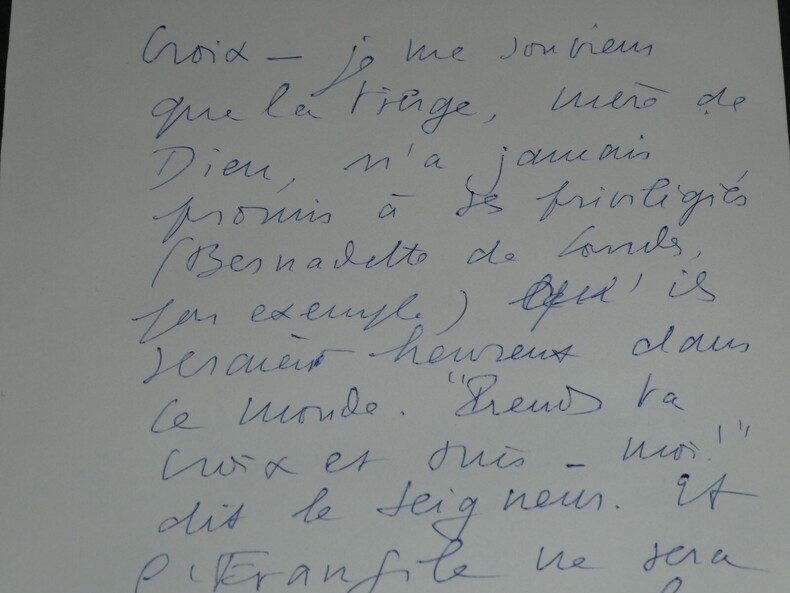 Croix – je me souviens
que la Vierge, mère de
Dieu, n'a jamais
promis à ses privilégiés
(Bernadette de Lourdes,
par exemple) qu'ils
seraient heureux dans
ce monde. "Prends ta
Croix et suis-moi!"
dit le Seigneur. Et
l'Evangile ne sera